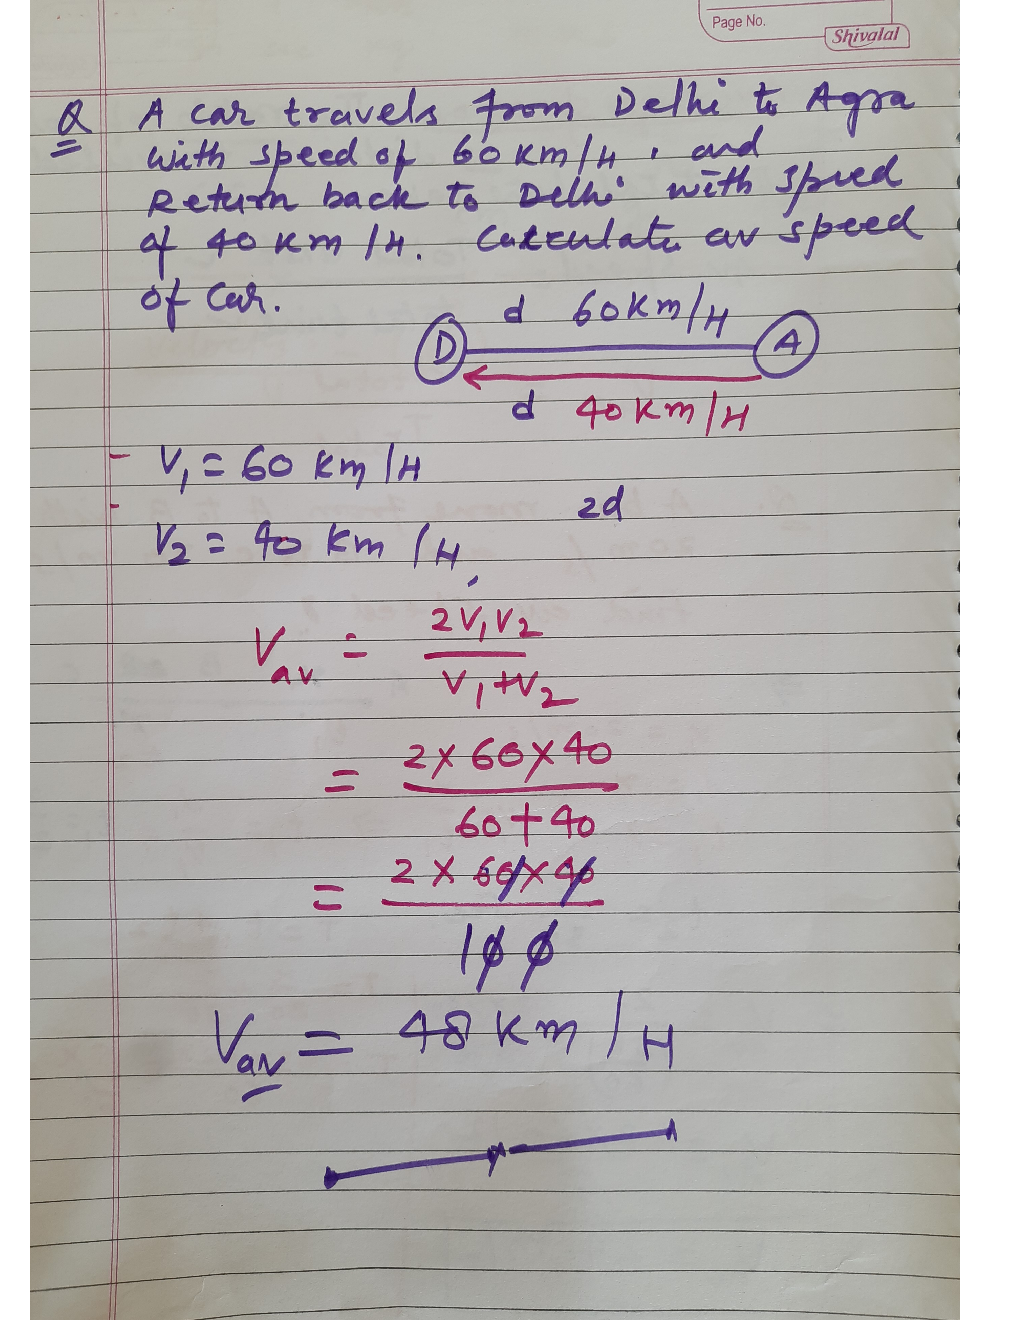 Page No.
Shivalal
Q A car travels from Delhi to Agra
with speed of 60 Km/H, and
Return back to Delhi with speed
of 40 Km/H. Calculate av speed
of Car.
d 60Km/H
D A
d 40 Km/H
V₁ = 60 Km/H
2d
V₂ = 40 Km/H,
Vav = 2V₁V₂
V₁+V₂
= 2×60×40
60+40
= 2×60×40
100
Vav = 48 Km/H